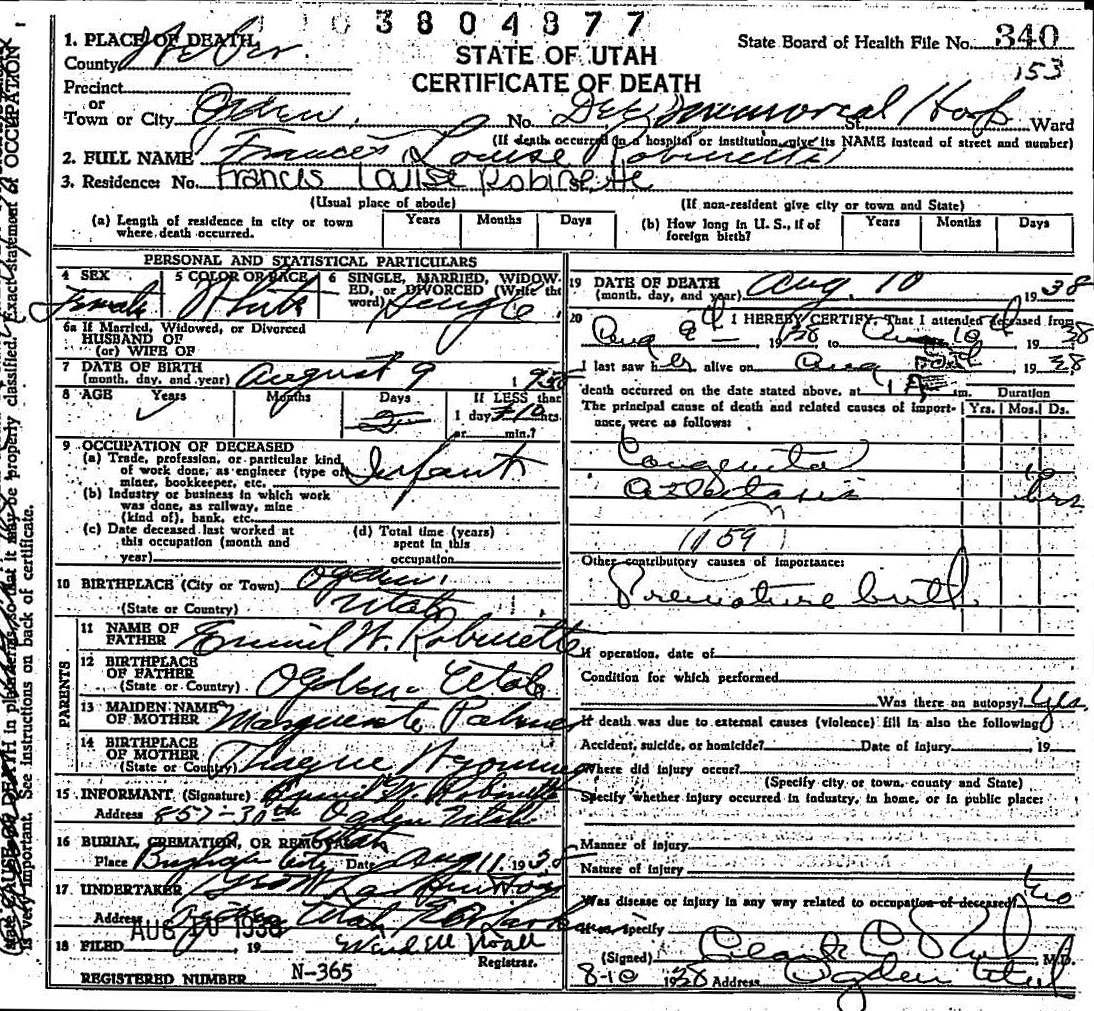 3804877
1. PLACE OF DEATH
County Weber
STATE OF UTAH
CERTIFICATE OF DEATH
State Board of Health File No. 340
153
Precinct
or
Town or City Ogden, No. Dee Memorial Hosp St. Ward
(If death occurred in a hospital or institution, give its NAME instead of street and number)
2. FULL NAME Frances Louise Robinette
3. Residence: No. Francis Louise Robinette St.
(Usual place of abode) (If non-resident give city or town and State)
(a) Length of residence in city or town where death occurred. Years Months Days
(b) How long in U. S., if of foreign birth? Years Months Days
PERSONAL AND STATISTICAL PARTICULARS
4 SEX Female
5 COLOR OR RACE White
6 SINGLE, MARRIED, WIDOWED, or DIVORCED (Write the word) Single
6a If Married, Widowed, or Divorced
HUSBAND OF
(or) WIFE OF
7 DATE OF BIRTH
(month, day, and year) August 9 1938
8 AGE Years Months Days If LESS than
1 day 10 hrs.
or min.?
9 OCCUPATION OF DECEASED
(a) Trade, profession, or particular kind
of work done, as engineer (type of
miner, bookkeeper, etc. Infant
(b) Industry or business in which work
was done, as railway, mine
(kind of), bank, etc.
(c) Date deceased last worked at
this occupation (month and
year)
(d) Total time (years)
spent in this
occupation
10 BIRTHPLACE (City or Town) Ogden,
(State or Country) Utah
PARENTS
11 NAME OF
FATHER W. Robinette
12 BIRTHPLACE
OF FATHER
(State or Country) Ogden Utah
13 MAIDEN NAME
OF MOTHER Marguerite Palmer
14 BIRTHPLACE
OF MOTHER
(State or Country) Thayne Wyoming
15 INFORMANT (Signature) W. Robinette
Address 857-30th Ogden Utah
16 BURIAL, CREMATION, OR REMOVAL Utah
Place Brigham City Date Aug 11, 1938
17 UNDERTAKER
Address Ogden Utah
18 FILED AUG 10 1938 19
Wendell Noall
Registrar.
REGISTERED NUMBER N-365
19 DATE OF DEATH
(month, day, and year) Aug 10 1938
20 I HEREBY CERTIFY, That I attended deceased from
Aug 9th 1938 to Aug 10th 1938
I last saw her alive on Aug 1938
death occurred on the date stated above, at 1 A m. Duration
The principal cause of death and related causes of importance, were as follows: Yrs. Mos. Ds.
Congenital 10
atelectasis hrs
159
Other contributory causes of importance:
Premature birth.
If operation, date of
Condition for which performed
Was there an autopsy? Yes
If death was due to external causes (violence) fill in also the following:
Accident, suicide, or homicide? Date of injury 19
Where did injury occur?
(Specify city or town, county and State)
Specify whether injury occurred in industry, in home, or in public place:
Manner of injury
Nature of injury
Was disease or injury in any way related to occupation of deceased? no
If so, specify
(Signed) M.D.
8-10 1938 Address Ogden Utah
state CAUSE OF DEATH in plain terms, so that it may be properly classified. Exact statement of OCCUPATION
is very important. See instructions on back of certificate.